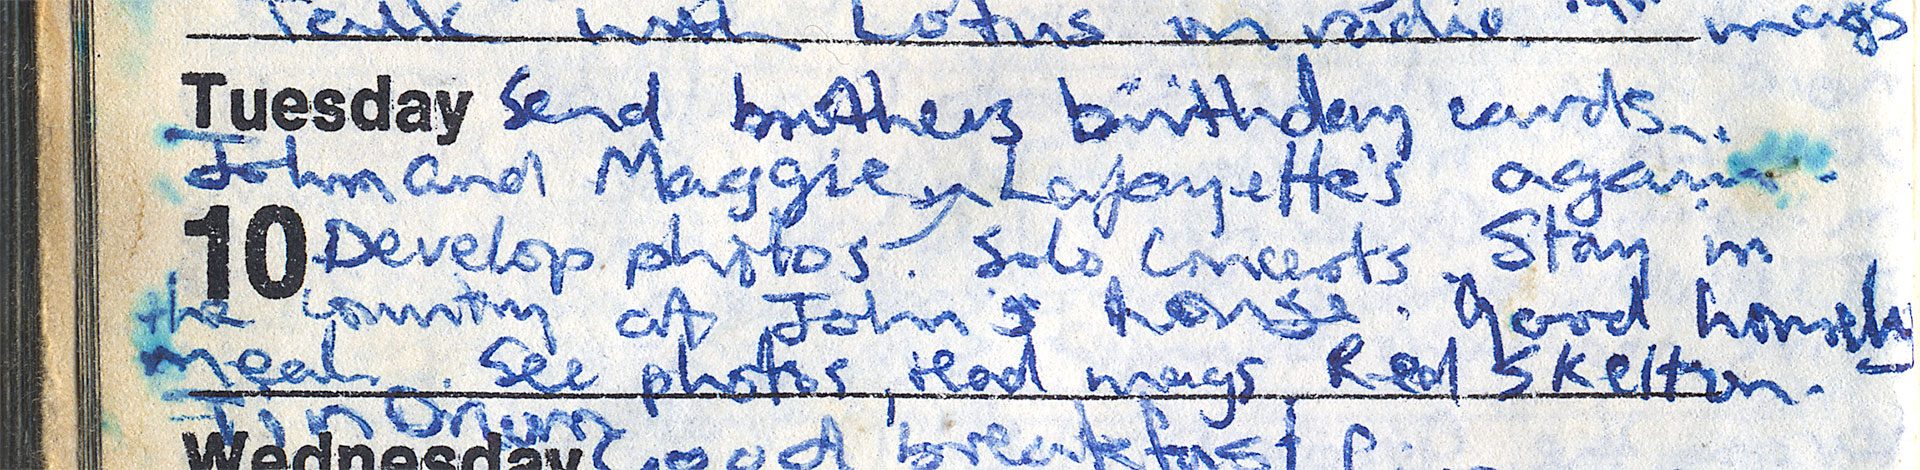 Talk with Lotus on radio. mags
Tuesday Send brothers birthday cards.
John and Maggie, Lafayette's again.
10 Develop photos. Solo Concerts. Stay in
the country at John's house. Good homely
meal. See photos, read mags Red Skelton.
Tin Drum
Wednesday Good breakfast